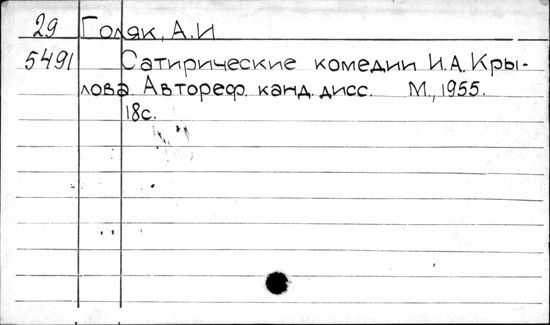 29 Голяк, А.И
5491 Сатирические комедии И.А. Кры-
лова. Автореф. канд. дисс. М., 1955.
18с.